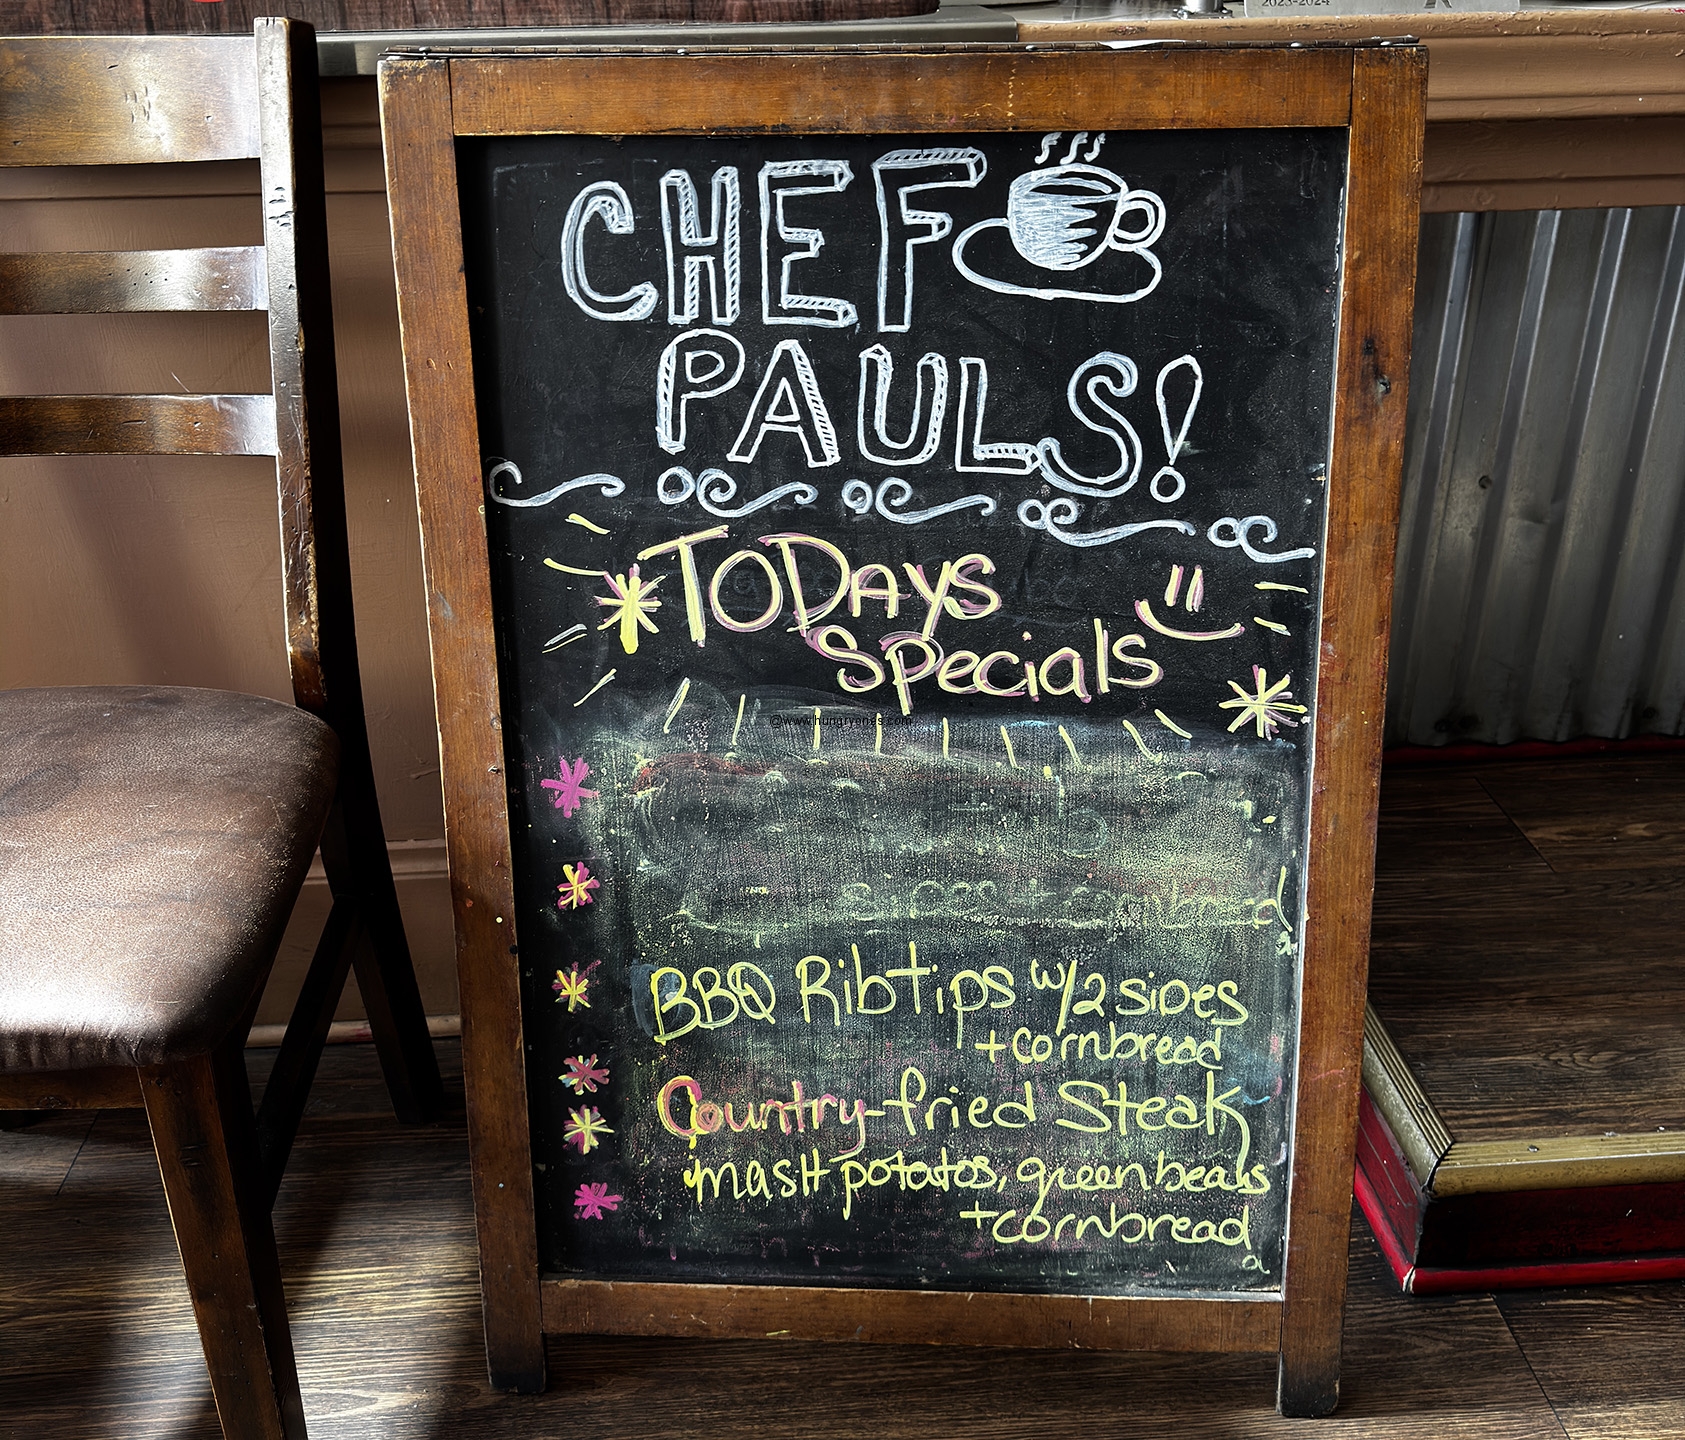 2023-2024
CHEF
PAULS!
TODAYS
Specials
@www.hungryones.com
BBQ Ribtips w/2 sides
+cornbread
Country-fried Steak
mash potatos, green beans
+cornbread